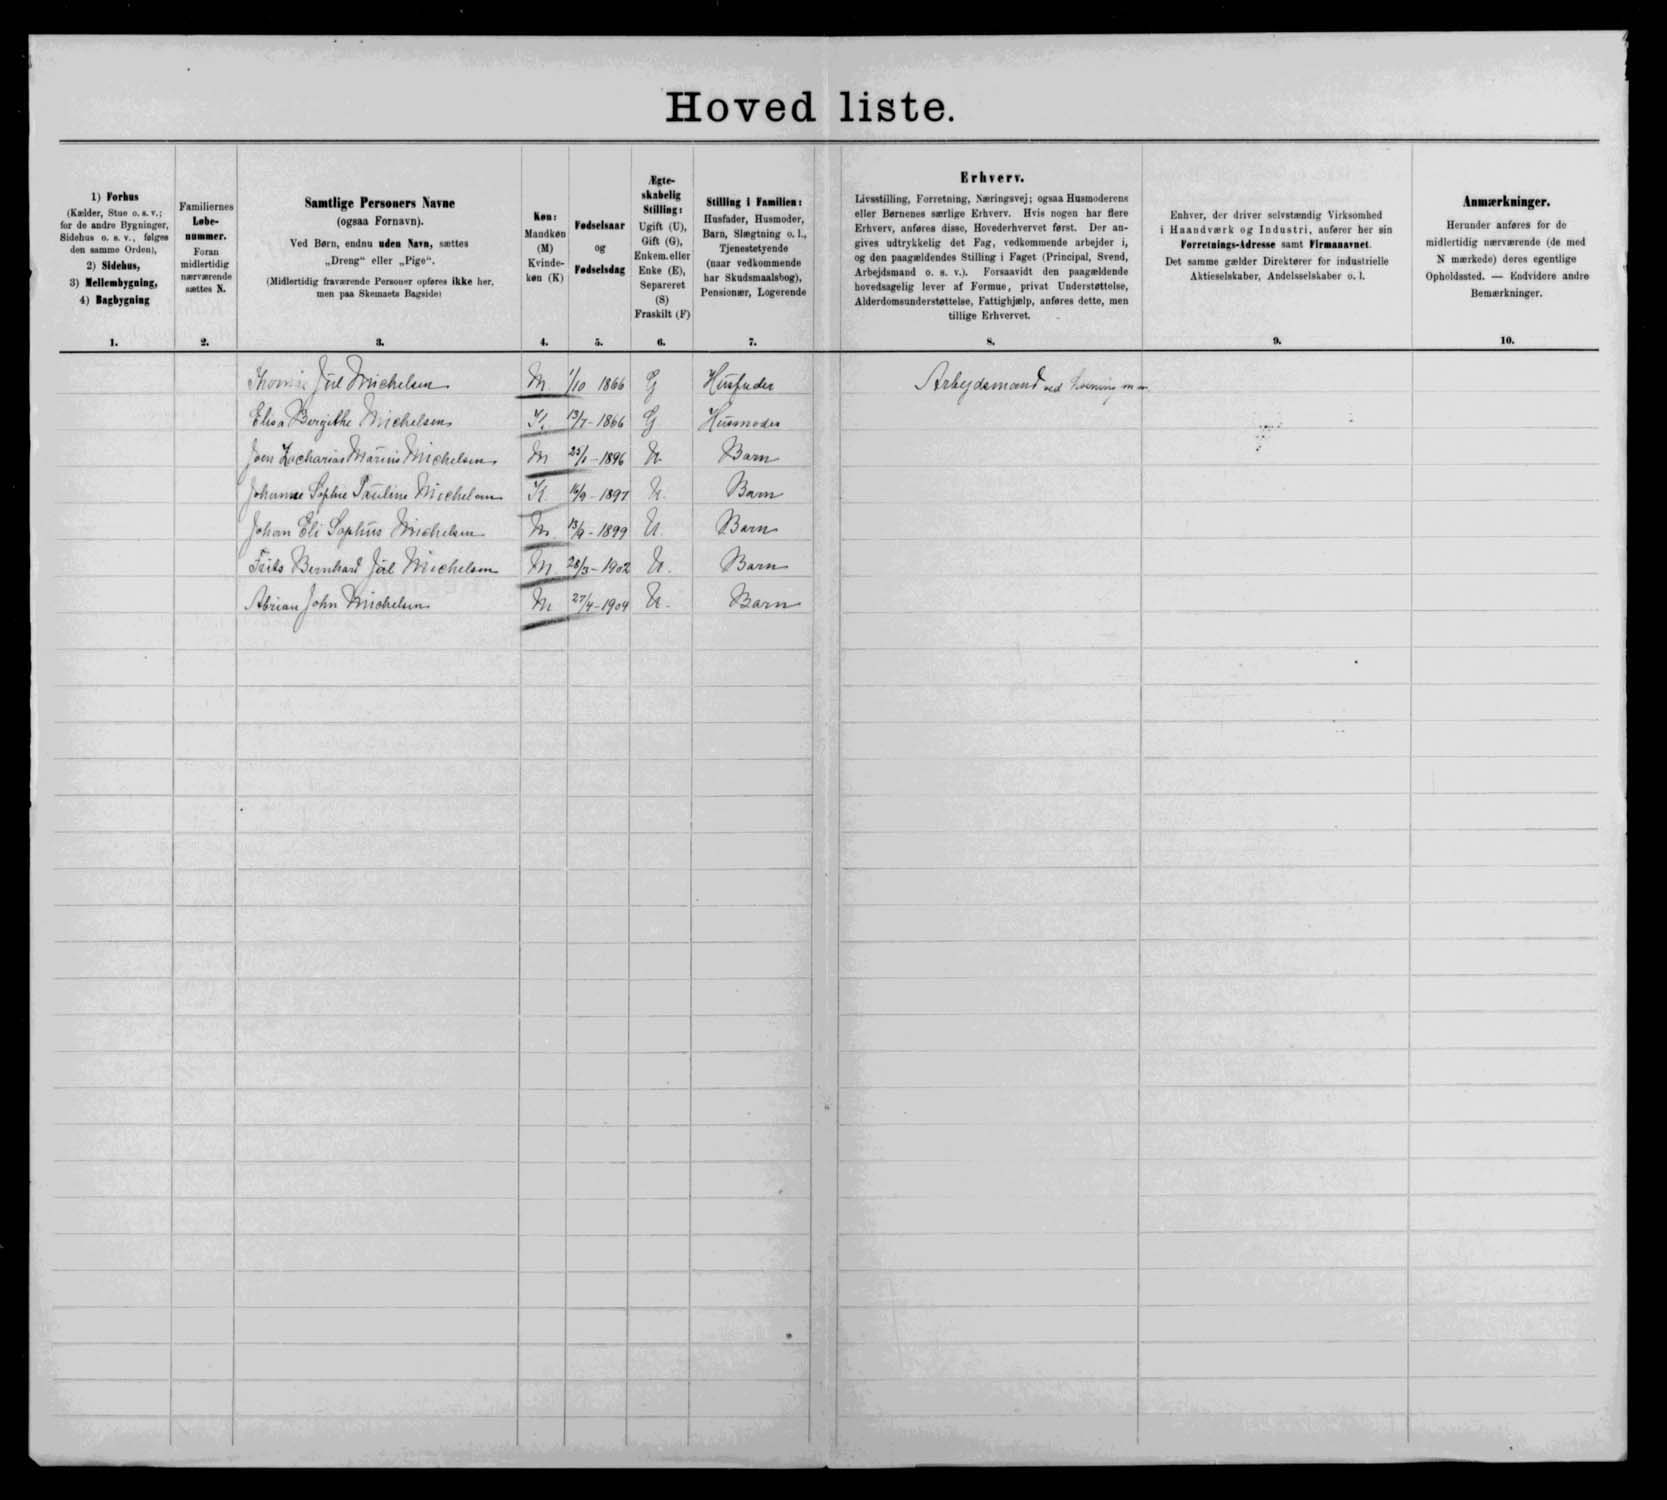 Hoved liste.
1) Forhus
(Kælder, Stue o. s. v.;
for de andre Bygninger,
Sidehus o. s. v., følges
den samme Orden),
2) Sidehus,
3) Mellembygning,
4) Bagbygning
1.
Familiernes
Løbe-
nummer.
Foran
midlertidig
nærværende
sættes N.
2.
Samtlige Personers Navne
(ogsaa Fornavn).
Ved Børn, endnu uden Navn, sættes
„Dreng“ eller „Pige“.
(Midlertidig fraværende Personer opføres ikke her,
men paa Skemaets Bagside)
3.
Køn:
Mandkøn
(M)
Kvinde-
køn (K)
4.
Fødselsaar
og
Fødselsdag
5.
Ægte-
skabelig
Stilling:
Ugift (U),
Gift (G),
Enkem. eller
Enke (E),
Separeret
(S)
Fraskilt (F)
6.
Stilling i Familien:
Husfader, Husmoder,
Barn, Slægtning o. l.,
Tjenestetyende
(naar vedkommende
har Skudsmaalsbog),
Pensionær, Logerende
7.
Erhverv.
Livsstilling, Forretning, Næringsvej; ogsaa Husmoderens
eller Børnenes særlige Erhverv. Hvis nogen har flere
Erhverv, anføres disse, Hovederhvervet først. Der an-
gives udtrykkelig det Fag, vedkommende arbejder i,
og den paagældendes Stilling i Faget (Principal, Svend,
Arbejdsmand o. s. v.). Forsaavidt den paagældende
hovedsagelig lever af Formue, privat Understøttelse,
Alderdomsunderstøttelse, Fattighjælp, anføres dette, men
tillige Erhvervet.
8.
Enhver, der driver selvstændig Virksomhed
i Haandværk og Industri, anfører her sin
Forretnings-Adresse samt Firmanavnet.
Det samme gælder Direktører for industrielle
Aktieselskaber, Andelsselskaber o. l.
9.
Anmærkninger.
Herunder anføres for de
midlertidig nærværende (de med
N mærkede) deres egentlige
Opholdssted. — Endvidere andre
Bemærkninger.
10.
Juel Michelsen M. 1/10 1866 G Husfader Arbejdsmand ved
Elisa Bergithe Michelsen K. 13/7-1866 G Husmoder
Zacharias Marius Michelsen M 1896 U. Barn
Johanne Sophie Pauline Michelsen K. 16/9-1897 U. Barn
Johan Eli Sophus Michelsen M. 13/9-1899 U. Barn
Frits Bernhard Juel Michelsen M. 28/3-1902 U. Barn
John Michelsen M 27/4-1904 U. Barn